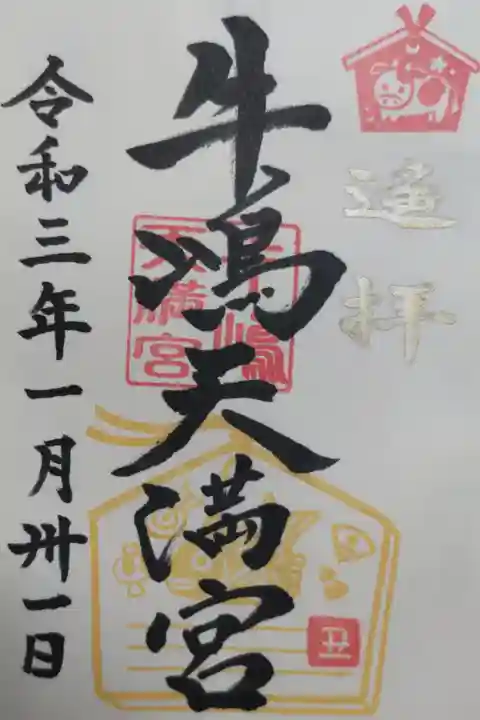 遥拝
牛嶋天満宮
牛嶋天満宮
令和三年一月卅一日
丑